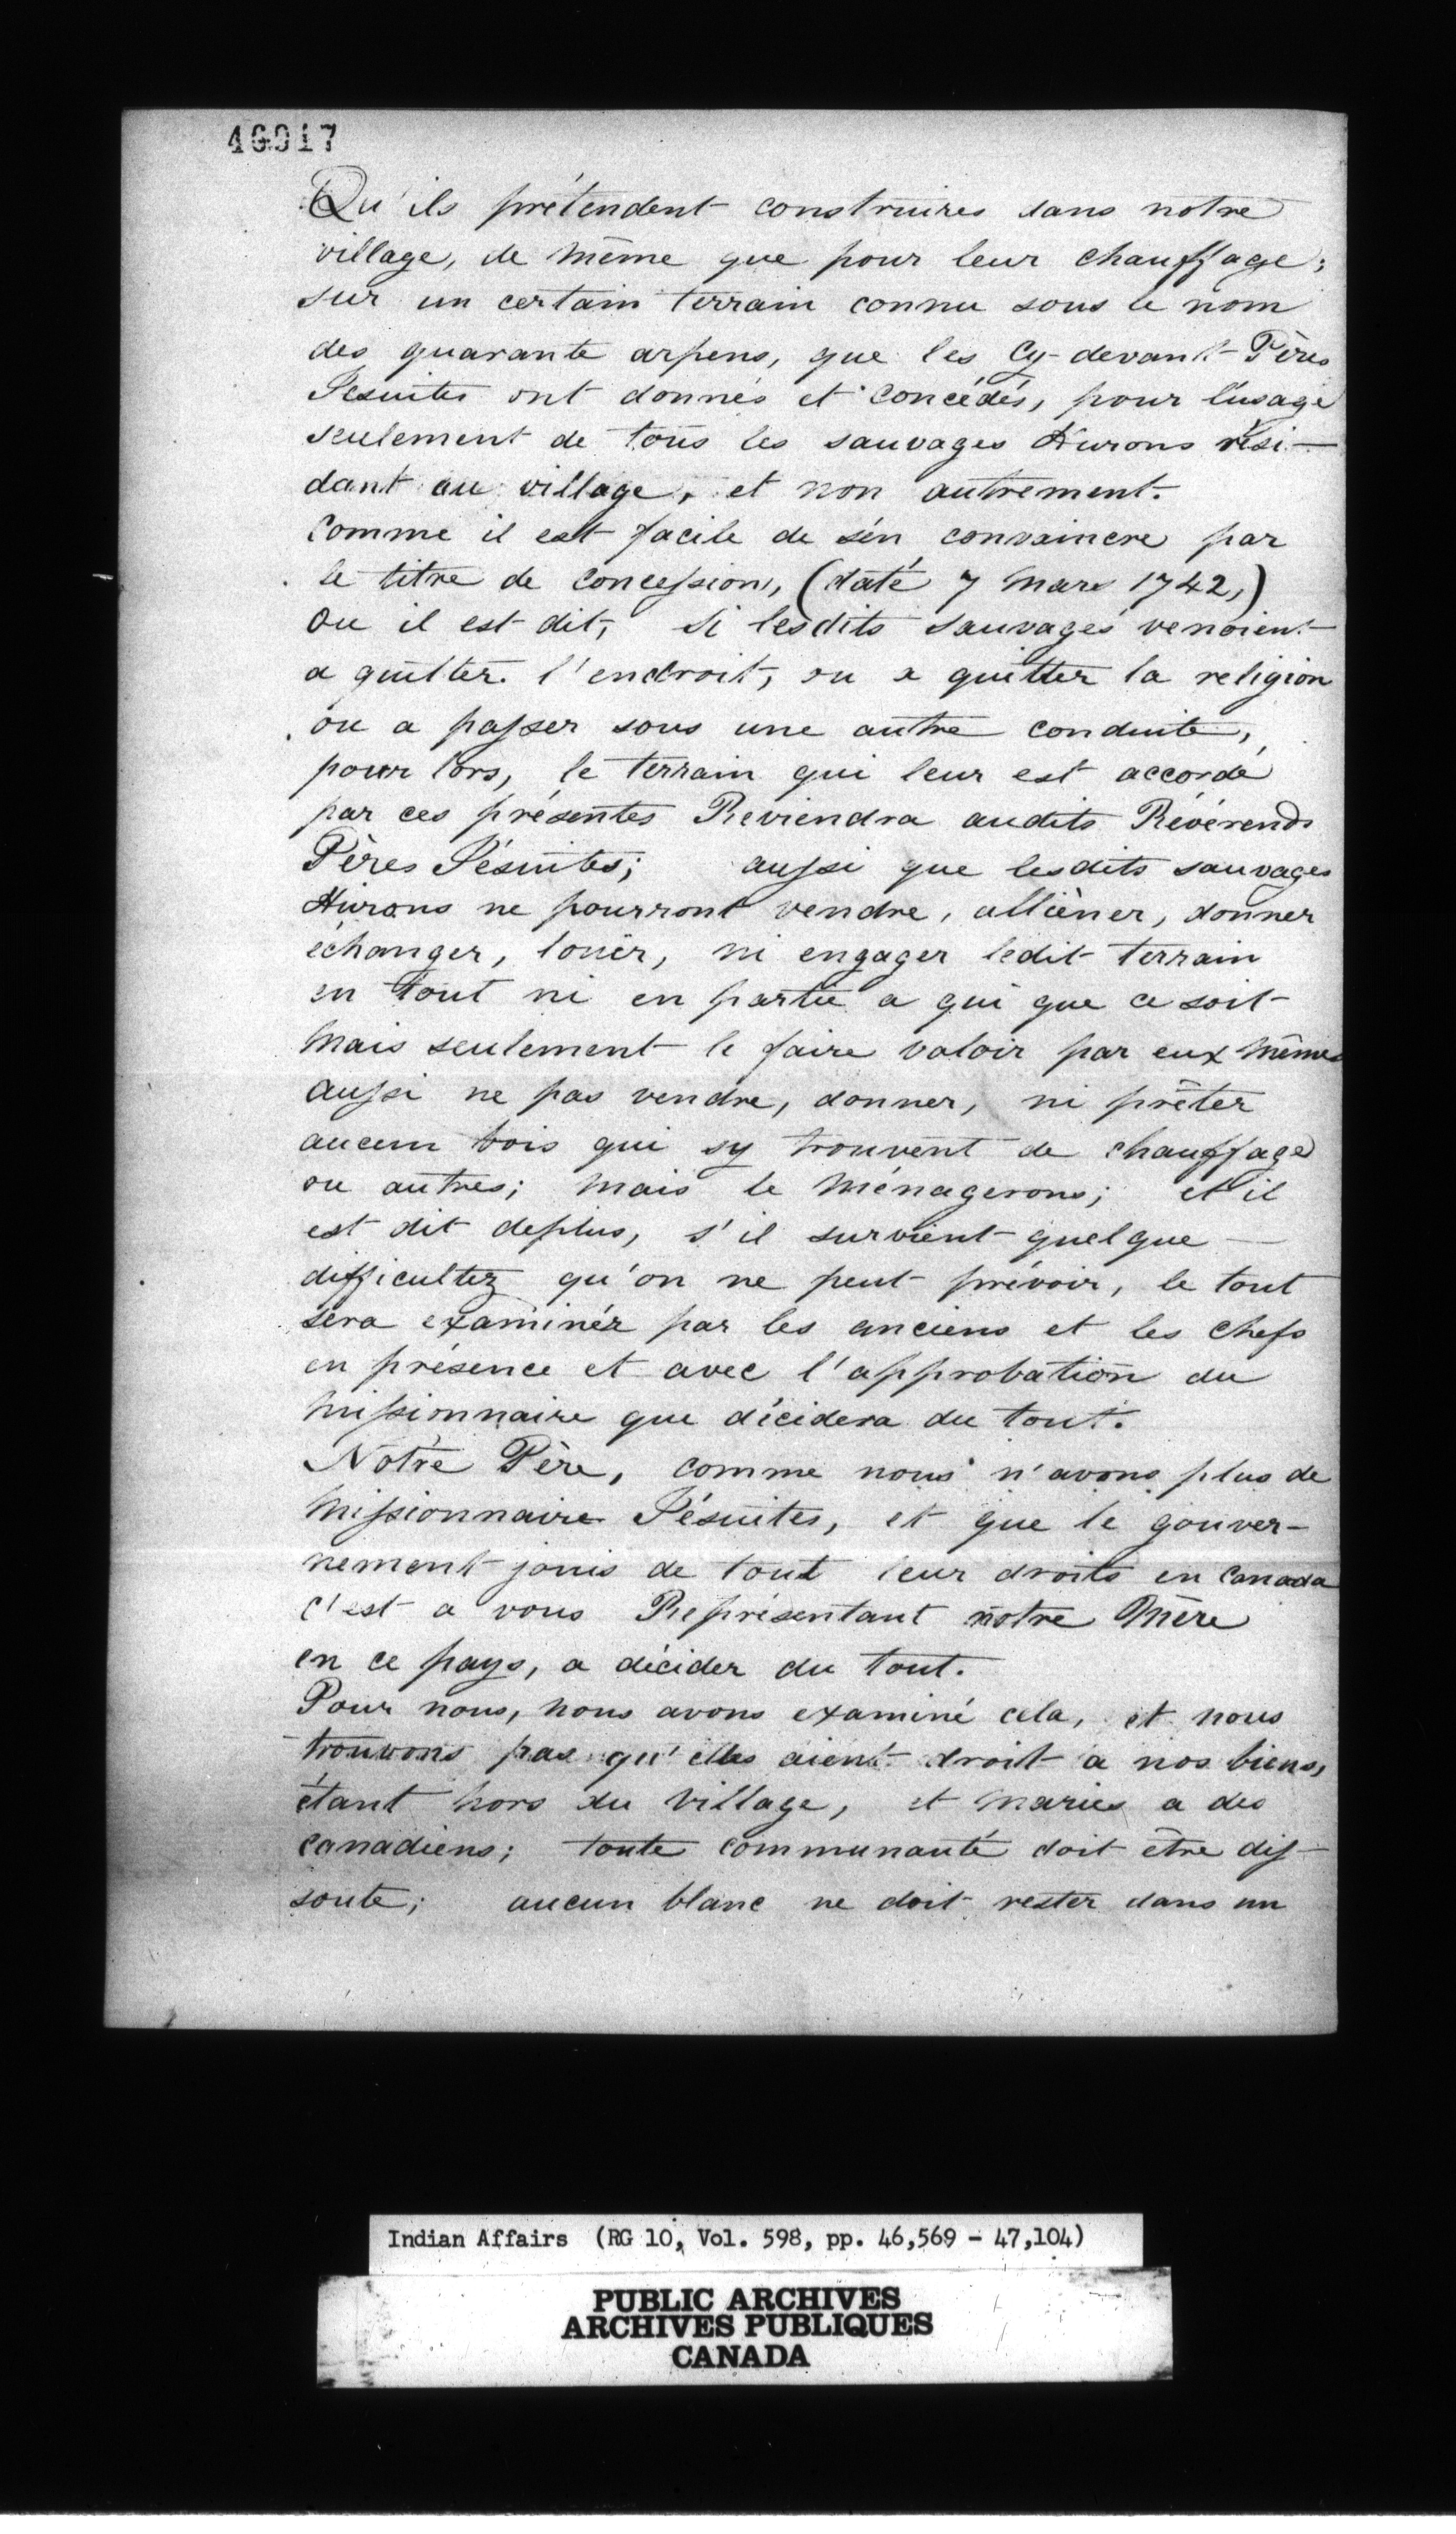 46917
Qu'ils prétendent construires dans notre
village, de même que pour leur chauffage;
sur un certain terrain connu sous le nom
des quarante arpens, que les Cy-devant Pères
Jesuites ont donnés et concédés, pour l'usage
seulement de tous les sauvages Hurons rési-
dant au village, et non autrement.
Comme il est facile de s'én convaincre par
le titre de concession, (daté 7 Mars 1742,)
Ou il est dit, Si lesdits Sauvages venoient
a quitter l'endroit, ou a quitter la religion
ou a passer sous une autre conduite,
pour lors, le terrain qui leur est accordé
par ces présentes Reviendra audits Révérends
Pères Jésuites; aussi que lesdits sauvages
Hurons ne pourront vendre, alliéner, donner
échanger, louer, ni engager ledit terrain
en tout ni en partie a qui que ce soit
Mais seulement le faire valoir par eux mêmes
aussi ne pas vendre, donner, ni prêter
aucun bois qui sy trouvent de chauffage
ou autres; Mais le Ménagerons; et il
est dit deplus, s'il survient quelque
difficultez qu'on ne peut prévoir, le tout
sera examinéz par les anciens et les chefs
en présence et avec l'approbation du
Missionnaire que décidera du tout.
Notre Père, comme nous n'avons plus de
Missionnaire Jésuites, et que le gouver-
nement jouis de tout leur droits en Canada
c'est a vous Représentant notre Mère
en ce pays, a décider du tout.
Pour nous, nous avons examiné cela, et nous
trouvons pas qu'elles aient droit a nos biens,
étant hors du Village, et Mariés a des
Canadiens; toute communauté doit être dis-
soute; aucun blanc ne doit rester dans un
Indian Affairs (RG 10, Vol. 598, pp. 46,569 - 47,104)
PUBLIC ARCHIVES
ARCHIVES PUBLIQUES
CANADA